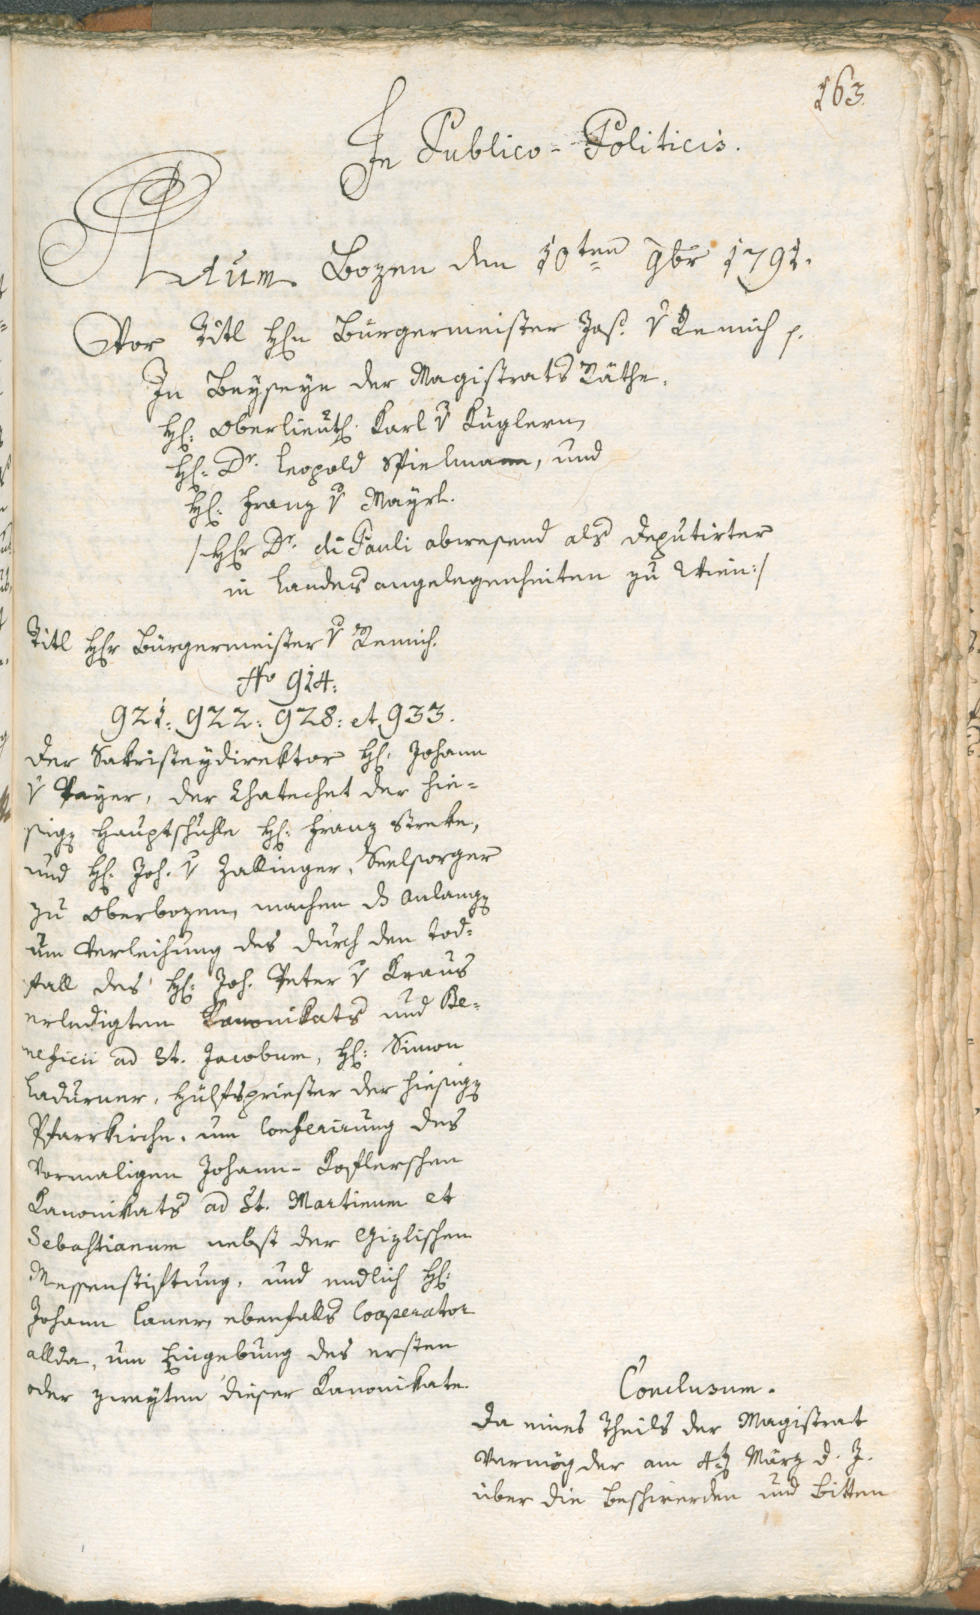 163.
In Publico-Politicis.
Actum Bozen den 10ten 9br 1791.
Vor Titl Hhn Bürgermeister Jos. v Remich p.
In Beyseyn der Magistrats Räthe.
Hh: Oberlieuth: Karl v Kuglern,
Hh: Dr. Leopold Spielmann, und
Hh: Franz v Mayrl.
/:Hhr Dr. di Pauli abwesend als deputirter
in Landes angelegenheiten zu Wien:/
Titl Hhr Bürgermeister v Remich.
No 914:
921: 922: 928: et 933.
Der Sakristeydirektor Hh: Johann
v Payer, der Chatechet der hie-
sigen Hauptschuhle Hh: Franz Streke,
und Hh: Joh. v Zallinger, Seelsorger
zu Oberbozen, machen ds Anlangen
um Verleihung des durch den Tod-
fall des Hh: Joh. Peter v Kraus
erledigten Kanonikats und Be-
neficii ad St. Jacobum, Hh: Simon
Ladurner, Hülfspriester der hiesigen
Pfarrkirche, um Conferirung des
vormaligen Johann-Koflerschen
Kanonikats ad St. Martinum et
Sebastianum nebst der Gizlischen
Messenstiftung, und endlich Hh:
Johann Laner, ebenfalls Cooperator
allda, um Eingebung des ersten
oder zweyten dieser Kanonikate.
Conclusum.
Da eines Theils der Magistrat
vermög der am 4ten März d. J.
über die Beschwerden und Bitten